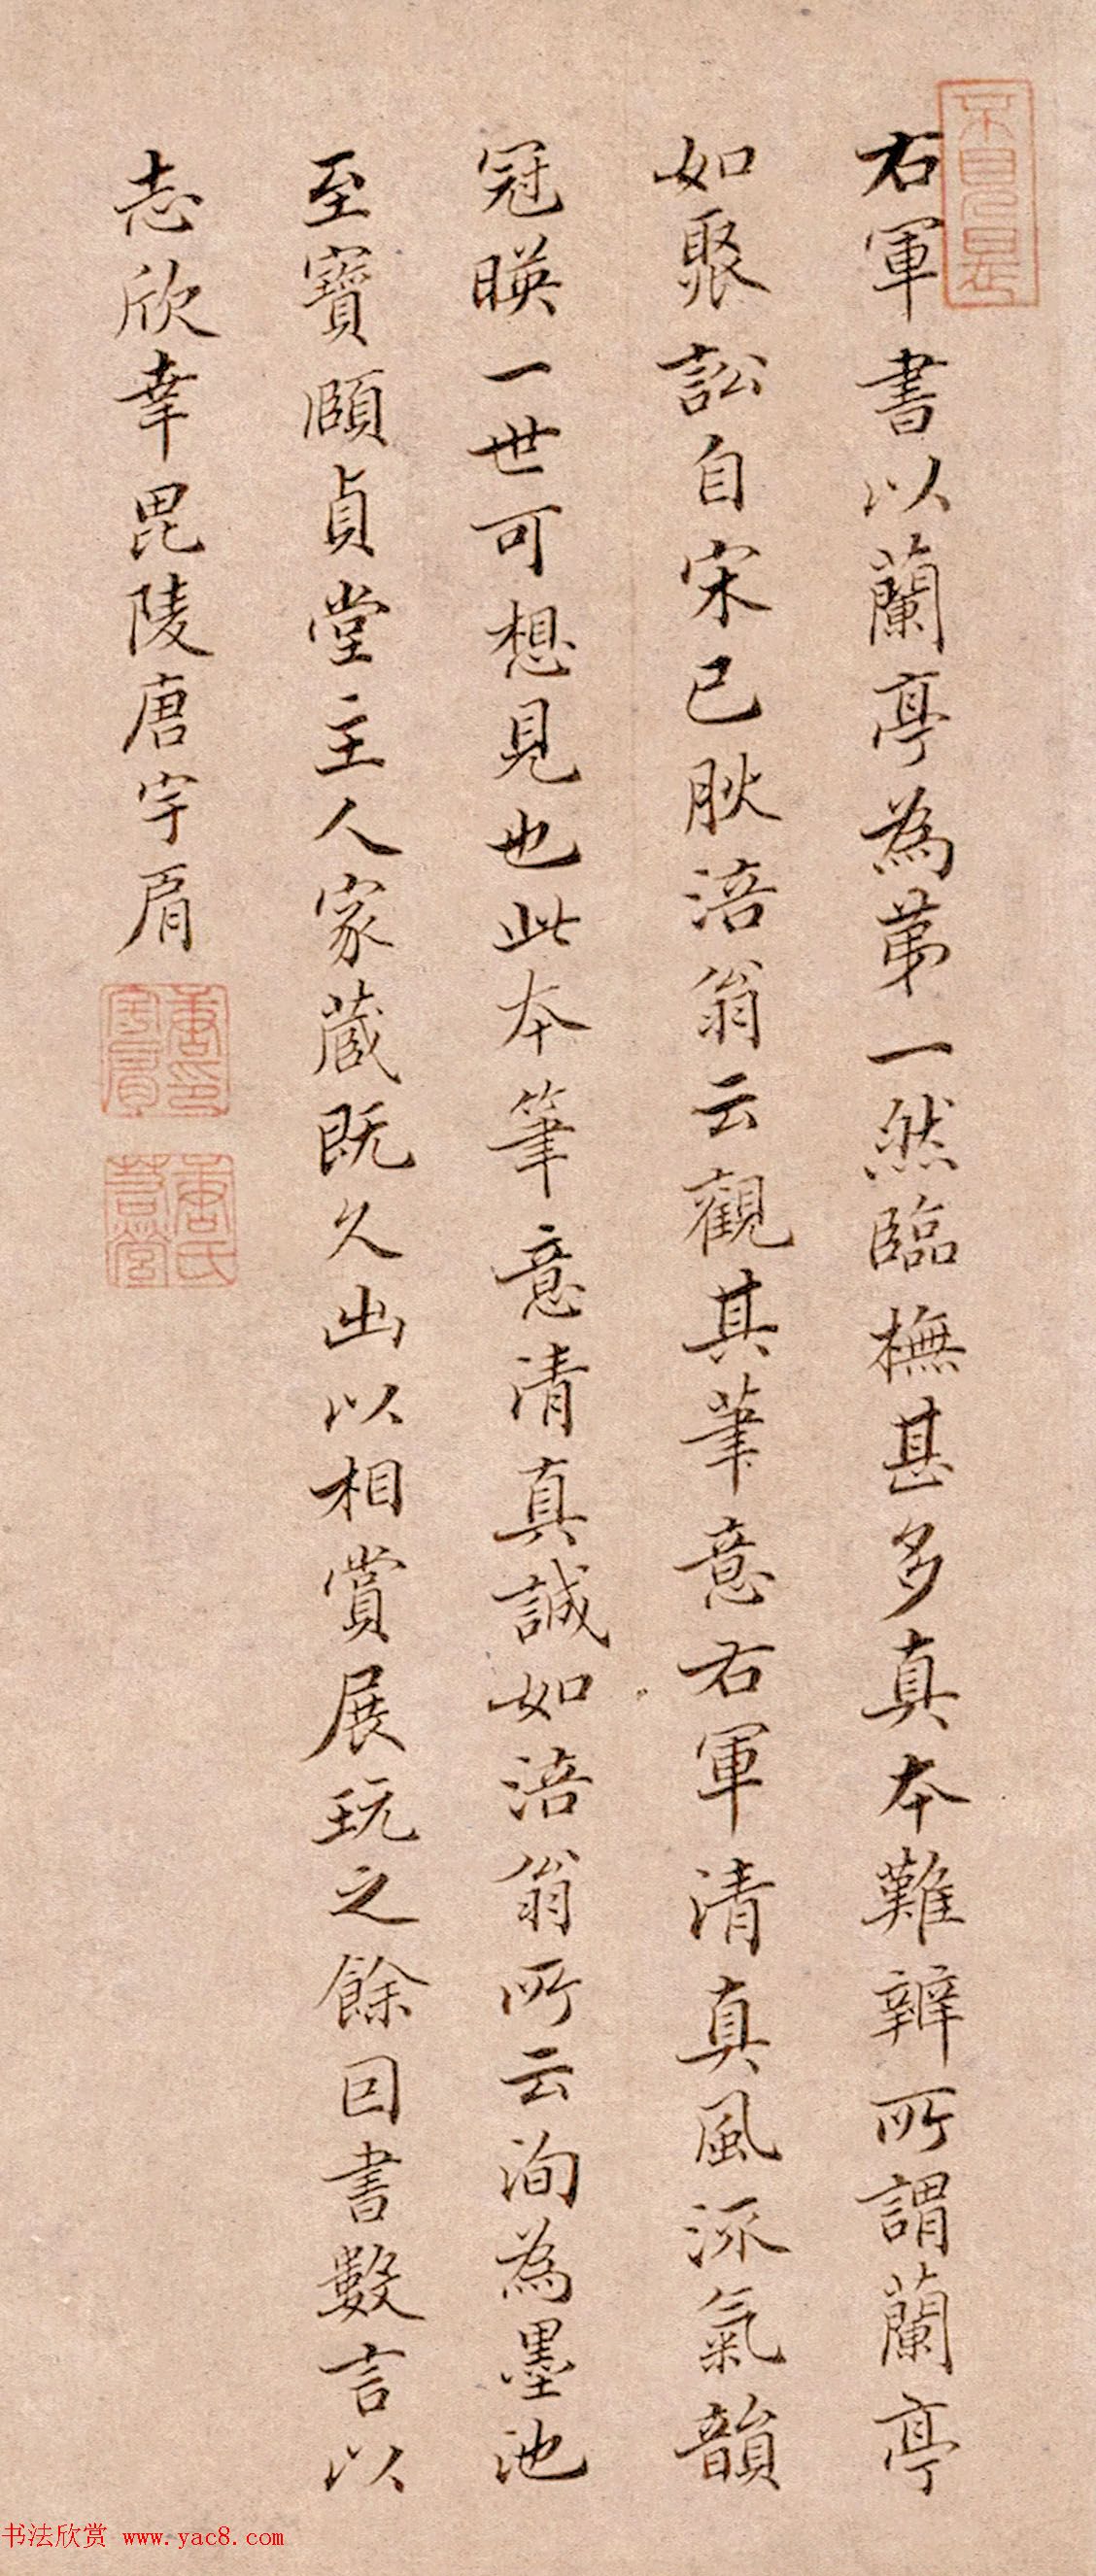 右軍書以蘭亭為苐一然臨橅甚多真本難辨所謂蘭亭
如聚訟自宋已肰涪翁云觀其筆意右軍清真風流氣韻
冠暎一世可想見也此本筆意清真誠如涪翁所云洵為墨池
至寶頤貞堂主人家藏既久出以相賞展玩之餘回書數言以
志欣幸毘陵唐宇肩
唐印宇肩
唐氏
书法欣赏 www.yac8.com